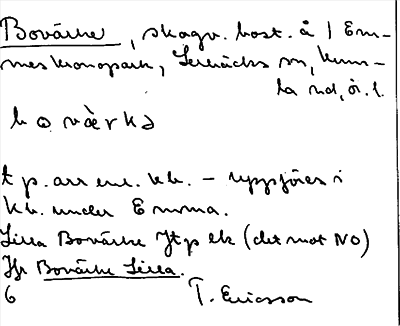 Bovärke, skogv. bost. å / Em-
meskronopark, Lerbäcks sn, Kum-
la hd, ör. l.
b o̱ vàrkə
t p. arr enl. kk. – uppföres i
kk. under Emma.
Lilla Bovärke Jtp ek (det mot NO)
Jfr Bovärke Lilla.
6 T. Ericsson